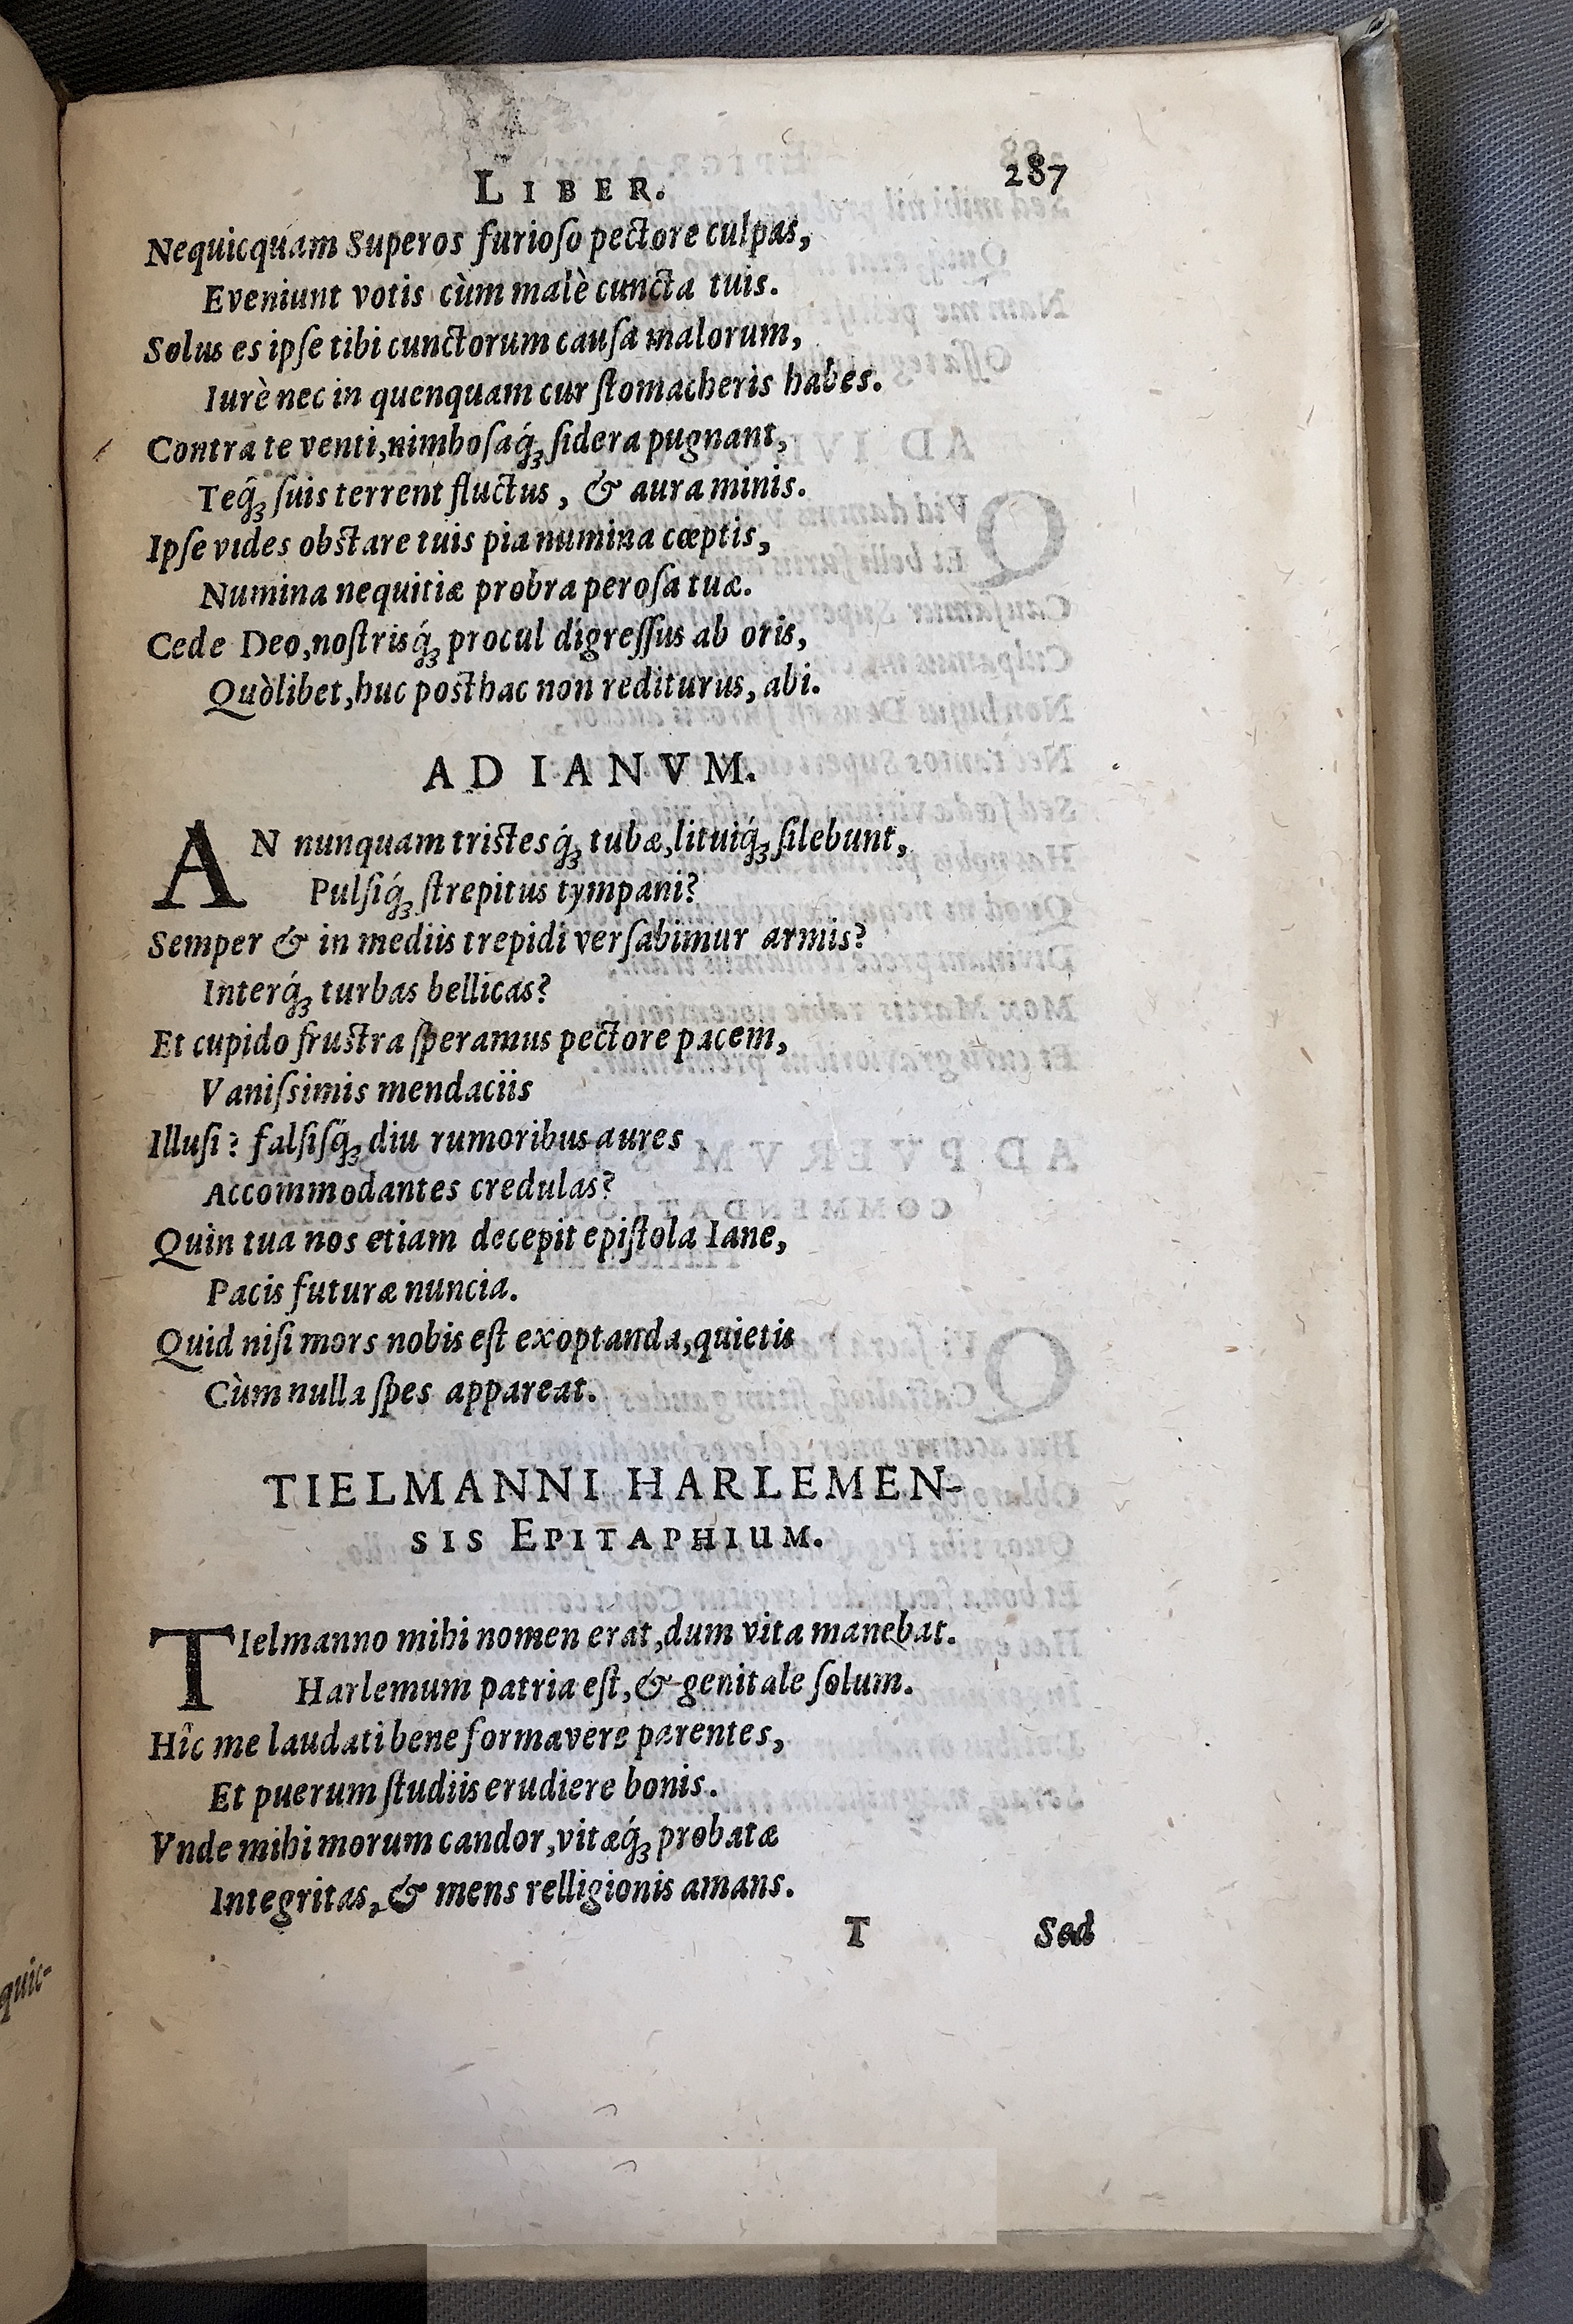 LIBER. 287
Nequicquam Superos furioſo pectore culpas,
Eveniunt votis cùm malè cuncta tuis.
Solus es ipſe tibi cunctorum cauſa malorum,
Iurè nec in quenquam cur ſtomacheris habes.
Contra te venti, nimboſaq́ꝫ ſidera pugnant,
Teq́ꝫ ſuis terrent fluctus, & aura minis.
Ipſe vides obstare tuis pia numina cœptis,
Numina nequitiæ probra peroſa tuæ.
Cede Deo, noſtrisq́ꝫ procul digreſſus ab oris,
Quòlibet, huc posthac non rediturus, abi.
AD IANVM.
AN nunquam tristesq́ꝫ tubæ, lituiq́ꝫ ſilebunt,
Pulſiq́ꝫ ſtrepitus tympani?
Semper & in mediis trepidi verſabimur armis?
Interq́ꝫ turbas bellicas?
Et cupido frustra ſperamus pectore pacem,
Vaniſsimis mendaciis
Illuſi? falſiſq́ꝫ diu rumoribus aures
Accommodantes credulas?
Quin tua nos etiam decepit epiſtola Iane,
Pacis futuræ nuncia.
Quid niſi mors nobis eſt exoptanda, quietis
Cùm nulla ſpes appareat.
TIELMANNI HARLEMEN-
SIS EPITAPHIUM.
TIelmanno mihi nomen erat, dum vita manebat.
Harlemum patria eſt, & genitale ſolum.
Hîc me laudati bene formavere parentes,
Et puerum ſtudiis erudiere bonis.
Vnde mihi morum candor, vitæq́ꝫ probatæ
Integritas, & mens relligionis amans.
T Sed
quic-